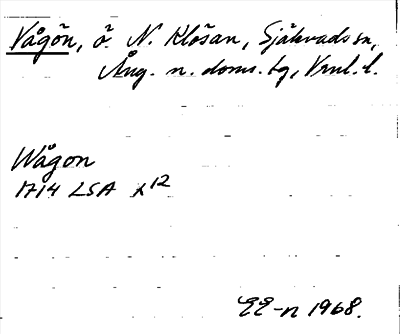 Vågön, ö. N. Klösan, Själevads sn,
Ång. n. doms. tg, Vnl. l.
Wågon
1714 LSA X 12
EE-n 1968.